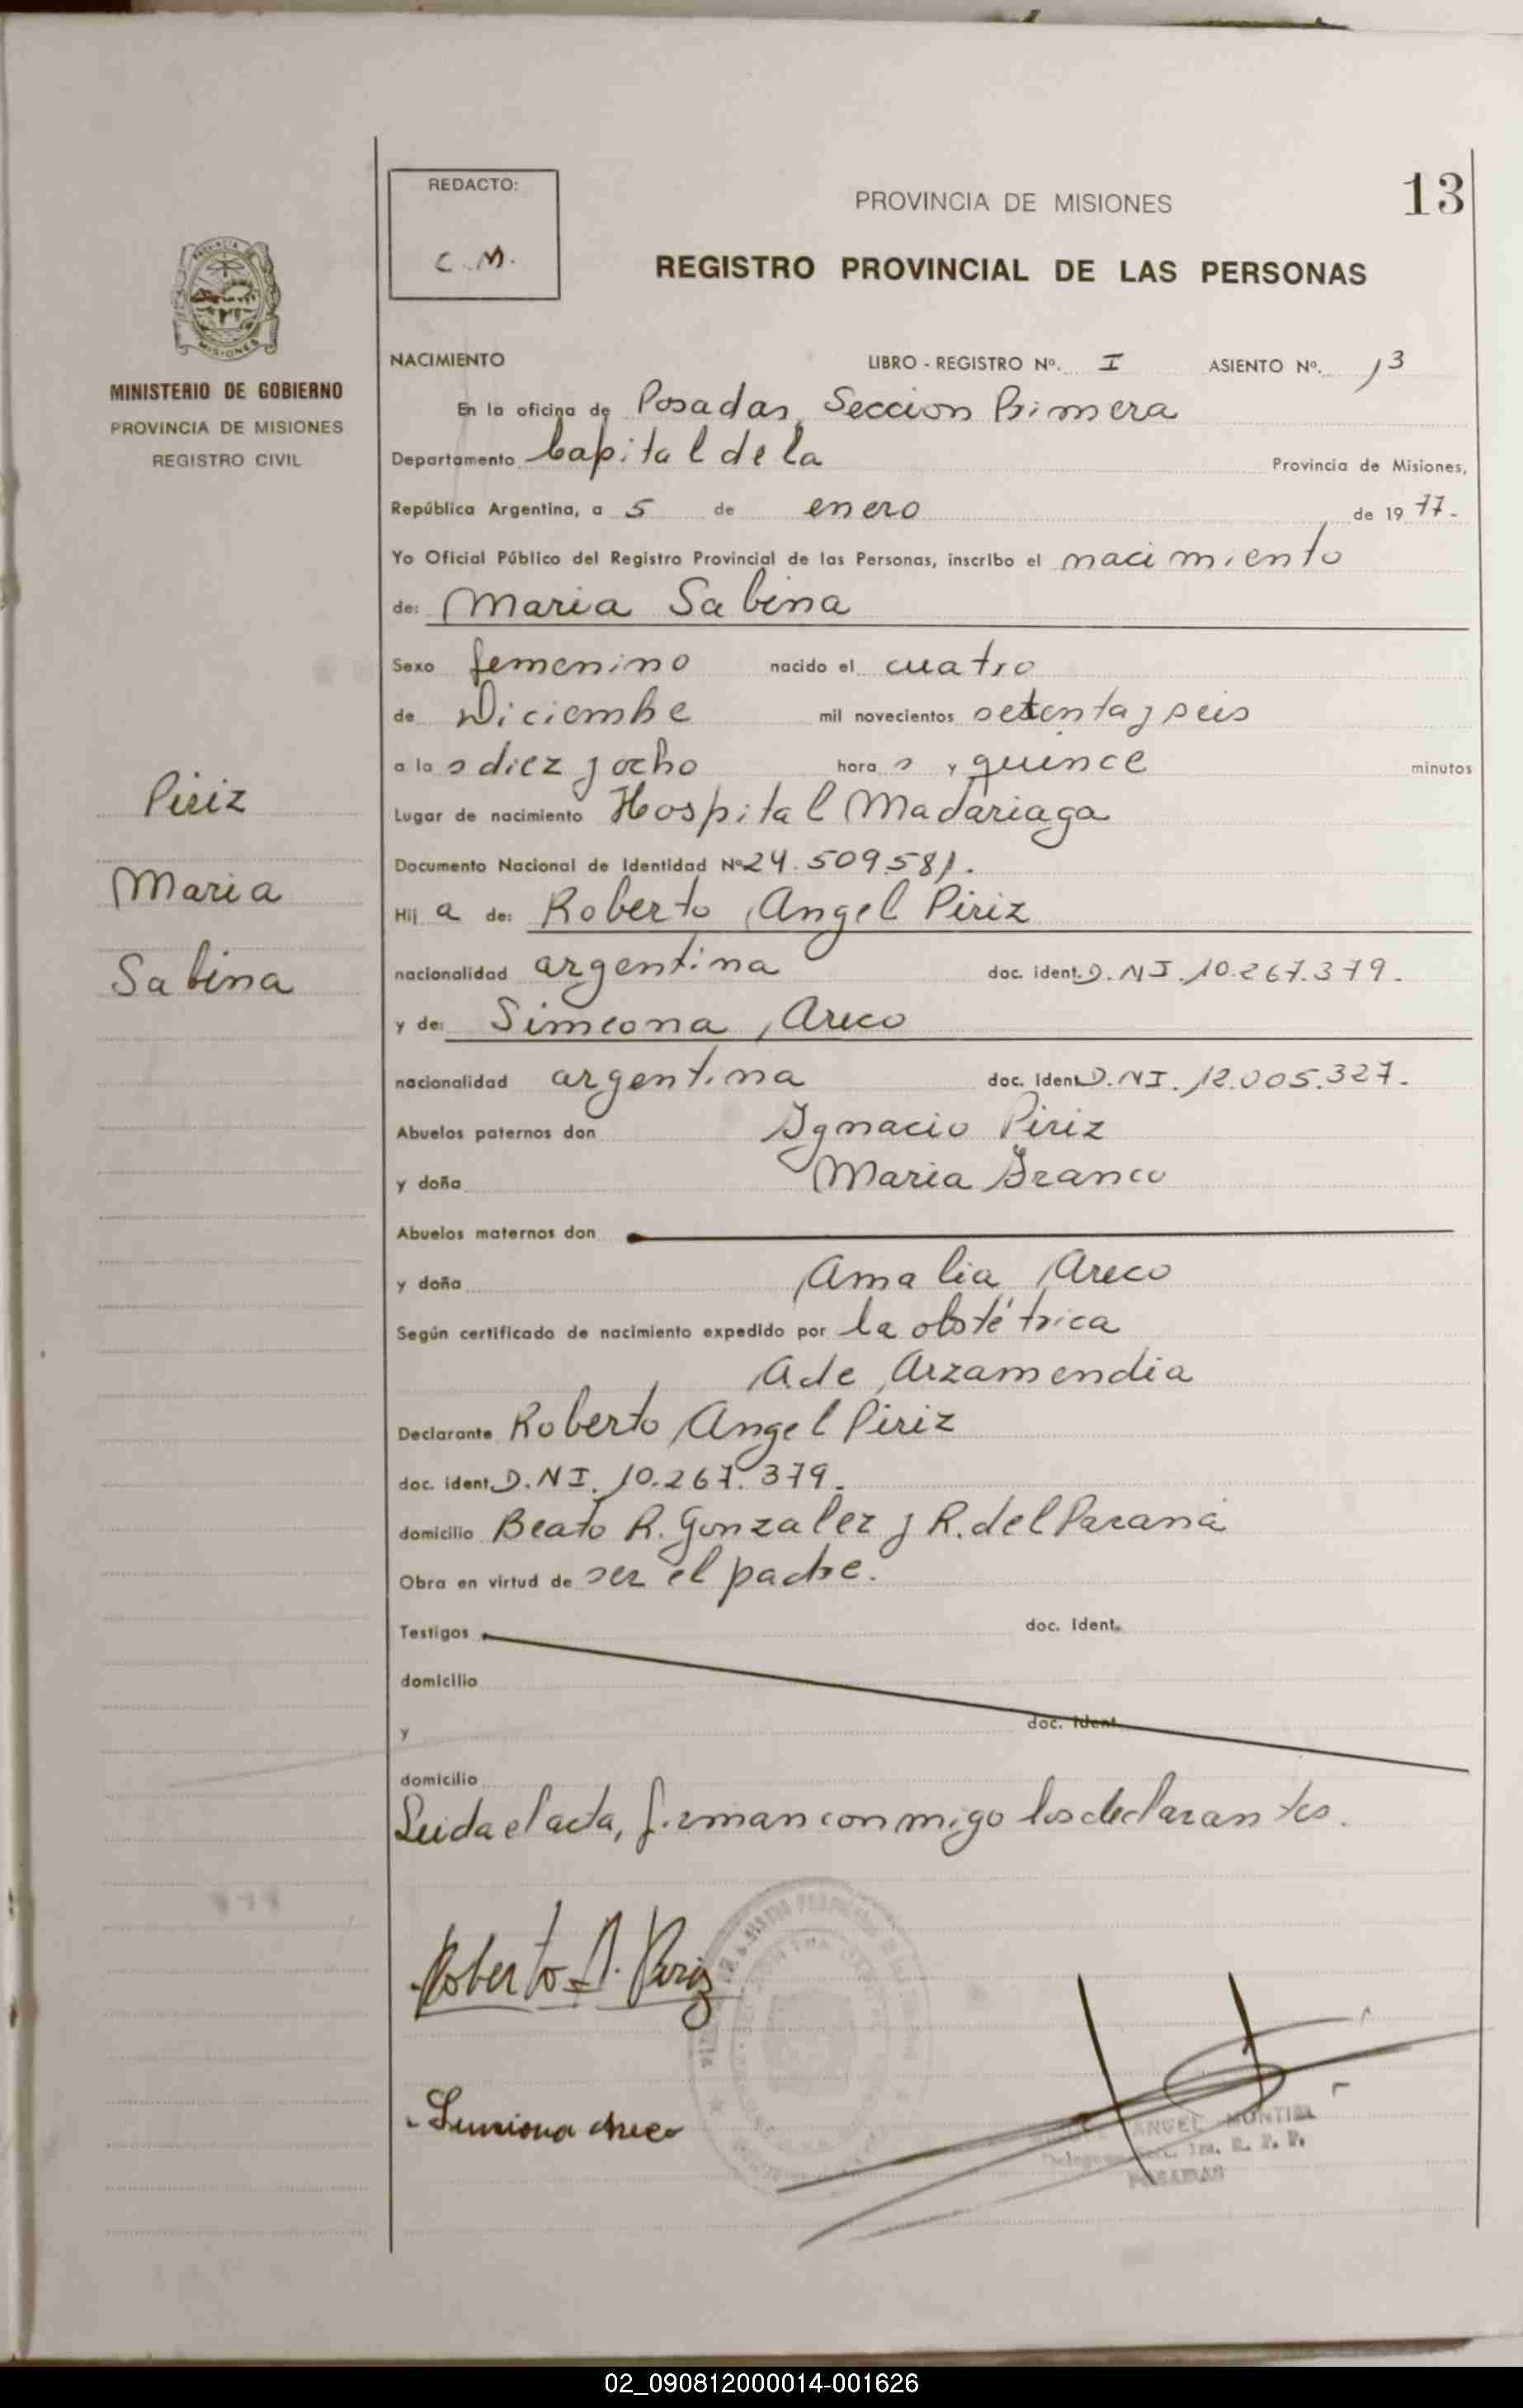 REDACTO:
C.M.
PROVINCIA DE MISIONES
13
REGISTRO PROVINCIAL DE LAS PERSONAS
MISIONES
MINISTERIO DE GOBIERNO
PROVINCIA DE MISIONES
REGISTRO CIVIL
Piriz
Maria
Sabina
NACIMIENTO LIBRO - REGISTRO Nº. I ASIENTO Nº. 13
En la oficina de Posadas, Seccion Primera
Departamento Capital de la Provincia de Misiones,
República Argentina, a 5 de enero de 1977.-
Yo Oficial Público del Registro Provincial de las Personas, inscribo el nacimiento
de: Maria Sabina
Sexo femenino nacido el cuatro
de Diciembre mil novecientos setenta y seis
a la s diez y ocho hora s y quince minutos
Lugar de nacimiento Hospital Madariaga
Documento Nacional de Identidad Nº 24.509.581.
Hij a de: Roberto Angel Piriz
nacionalidad argentina doc. ident. D.NI. 10.267.379.
y de: Simeona Areco
nacionalidad argentina doc. ident D.NI. 12.005.327.
Abuelos paternos don Ignacio Piriz
y doña Maria Franco
Abuelos maternos don
y doña Amalia Areco
Según certificado de nacimiento expedido por la obstétrica
Ade Arzamendia
Declarante Roberto Angel Piriz
doc. ident. D.NI. 10.267.379.
domicilio Beato R. Gonzalez y R. del Paraná
Obra en virtud de ser el padre.
Testigos doc. ident.
domicilio
y doc. ident.
domicilio
Leida el acta, firman conmigo los declarantes.
Roberto A. Piriz
Simiona Areco
ANGEL MONTIEL
POSADAS
02_090812000014-001626